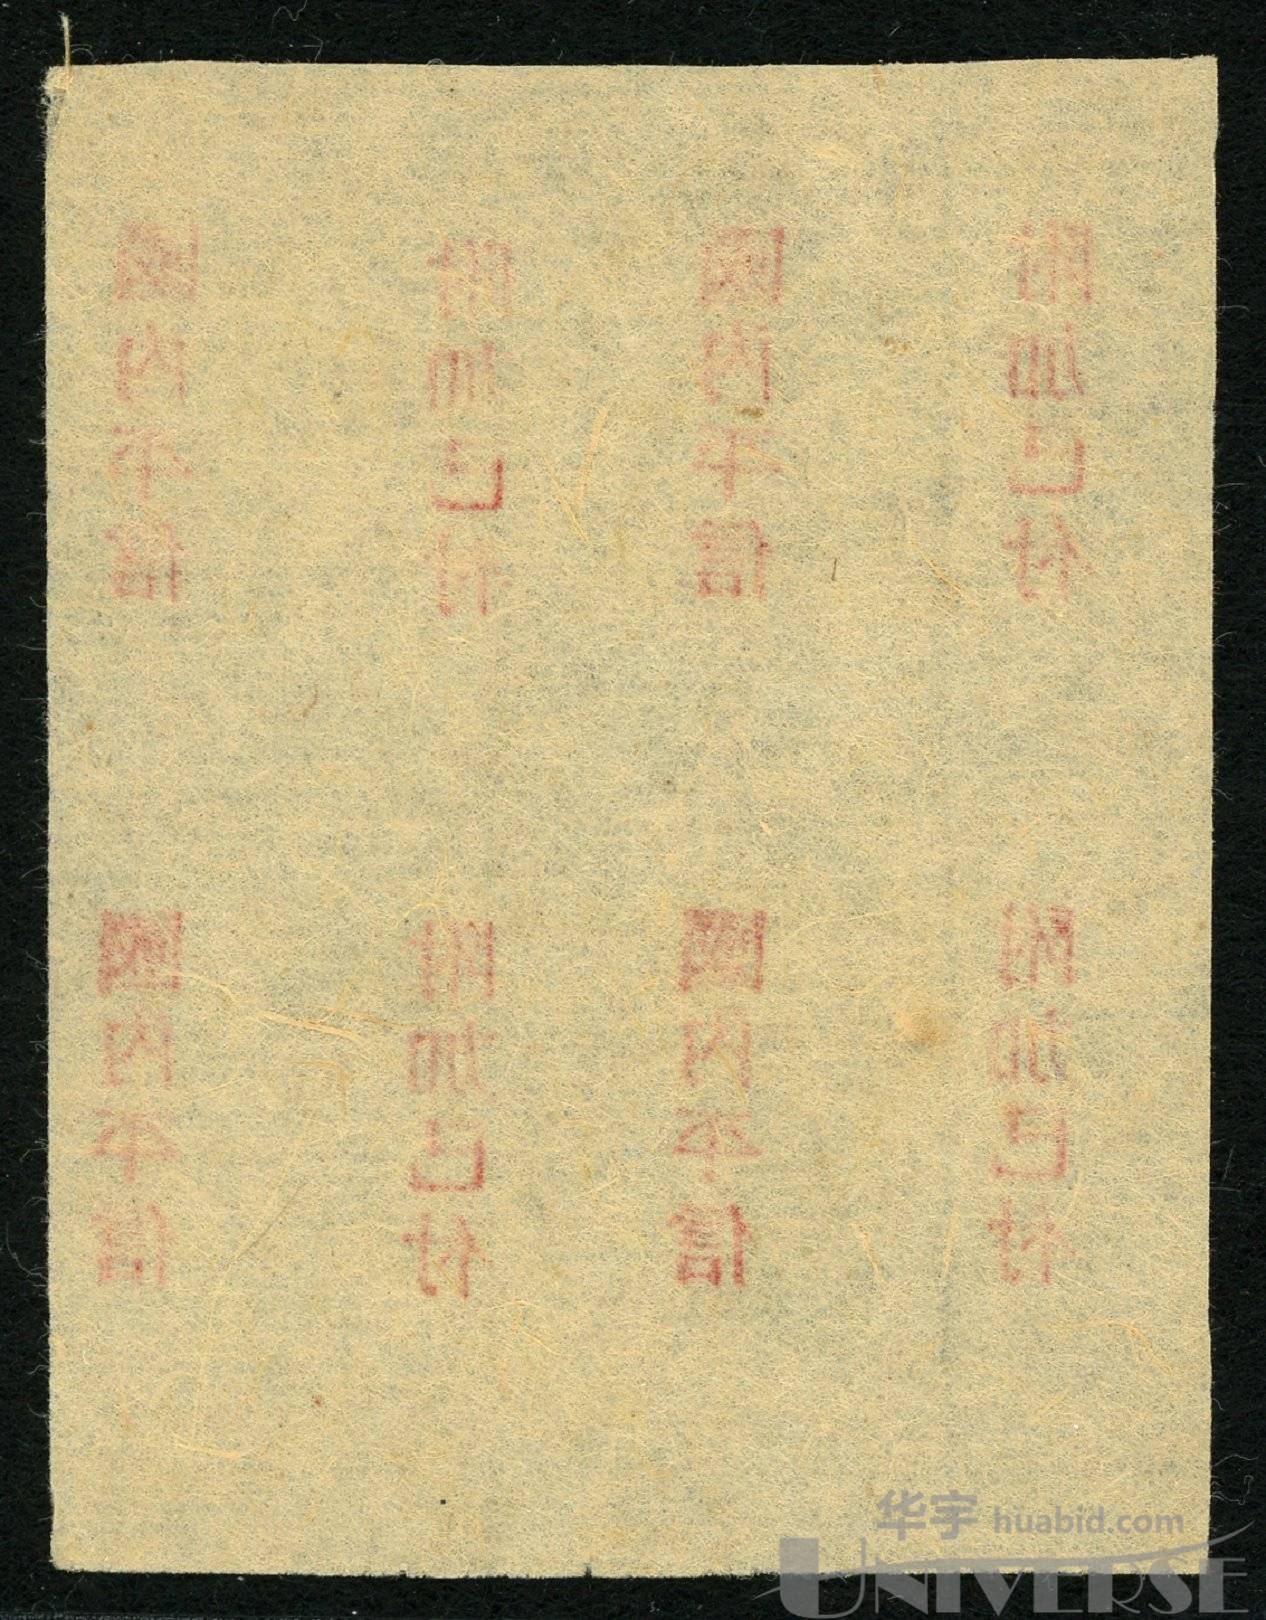 國內平信
附加已付
國內平信
附加已付
國內平信
附加已付
國內平信
附加已付
华宇 huabid.com
UNIVERSE